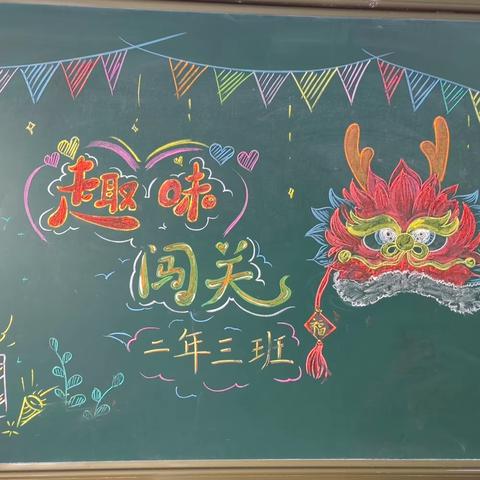 趣味
闯关
二年三班
福